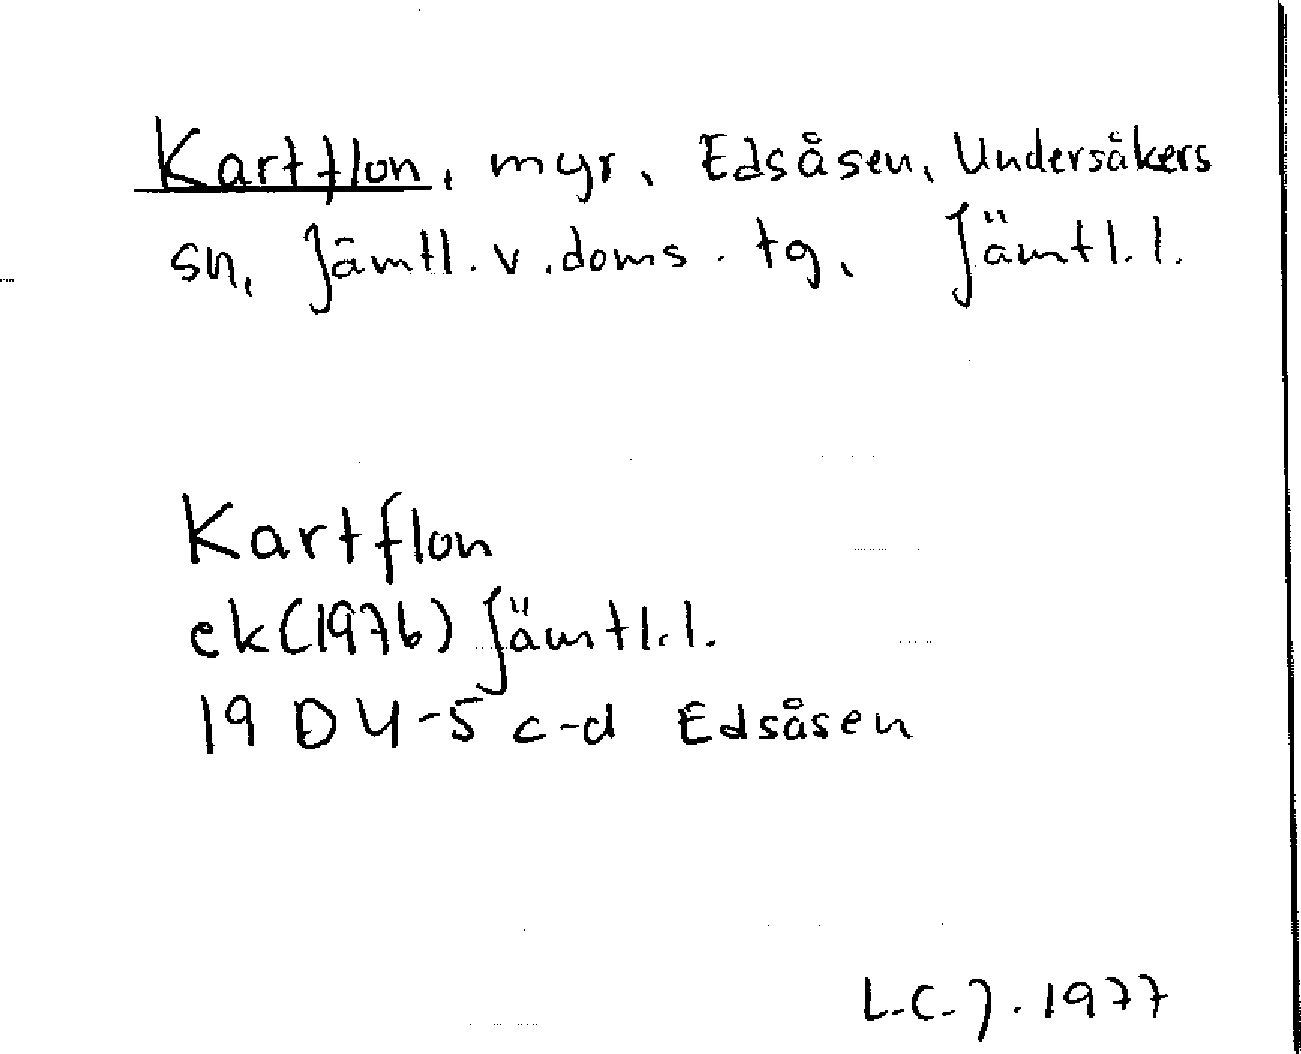 Kartflon, myr, Edsåsen, Undersåkers
sn, Jämtl. v. doms. tg, Jämtl. l.
Kartflon
ek (1976) Jämtl. l.
19 D 4-5 c-d Edsåsen
L.C.J. 1977